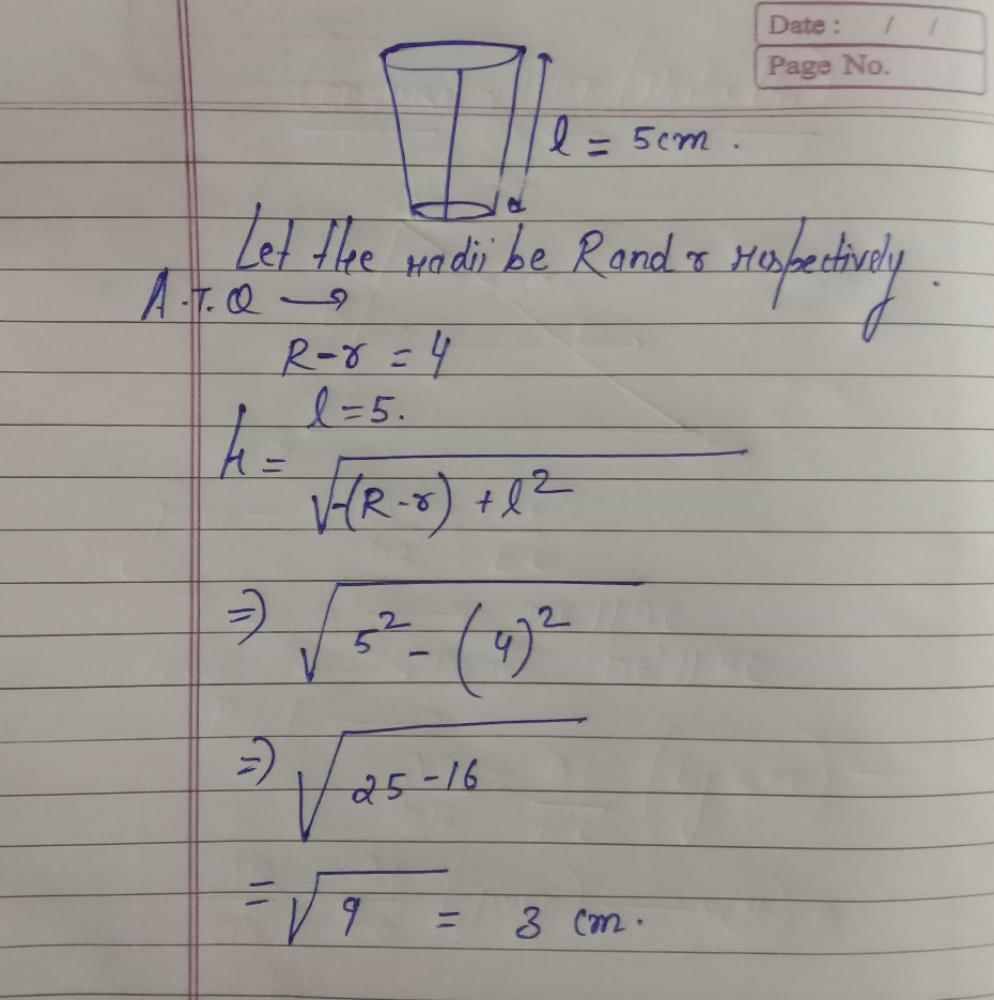 Date : / /
Page No.
l = 5cm .
Let the radii be R and r respectively .
A.T.Q →
R-r = 4
l = 5.
h = √-(R-r) + l²
=) √5² - (4)²
=) √25-16
= √9 = 3 cm.